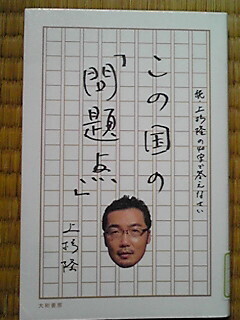 続・上杉隆の40字で答えなさい
この国の
「問題点」
上杉隆
大和書房